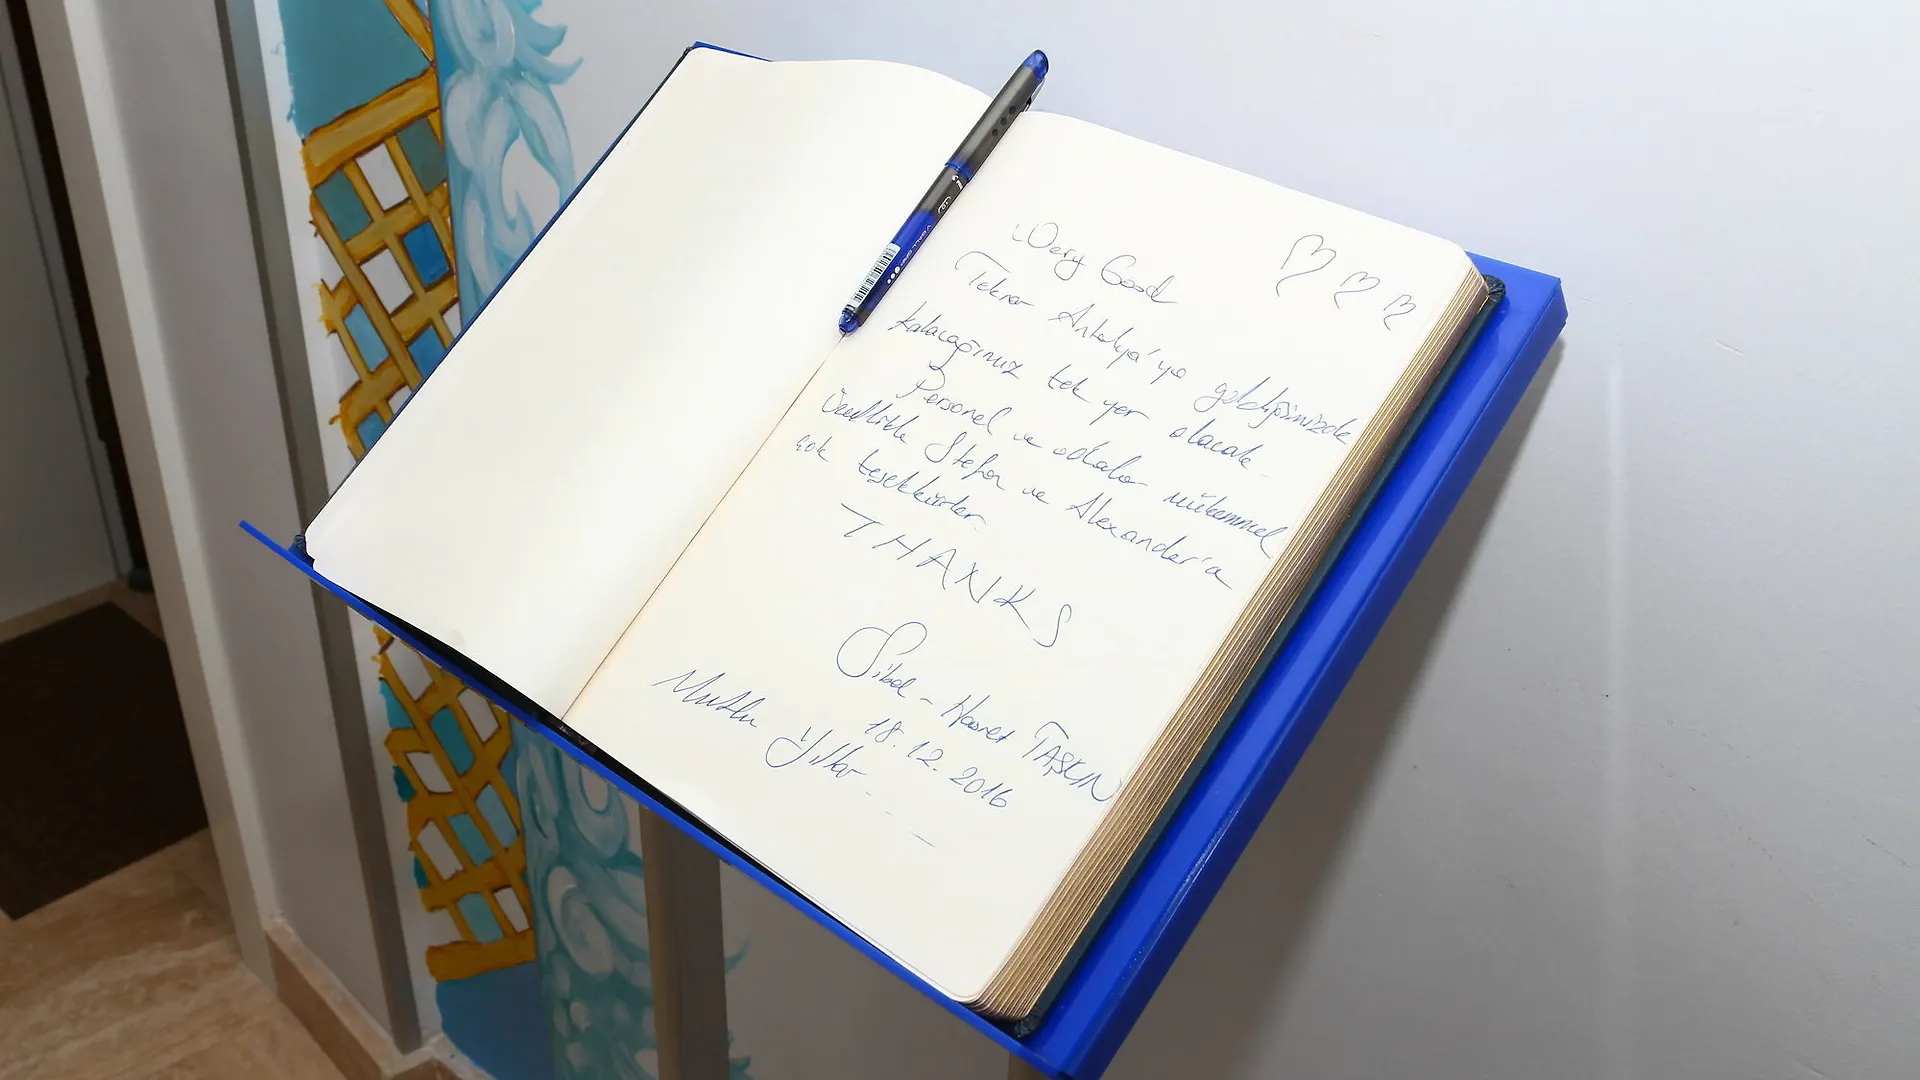 Very Good
Tekrar Antalya'ya geldiğimizde
kalacağımız tek yer olacak.
Personel ve odalar mükemmel
özellikle Stefan ve Alexander'a
çok teşekkürler.
THANKS
Sibel - Hasret TAŞKIN
18.12.2016
Mutlu Yıllar - - —